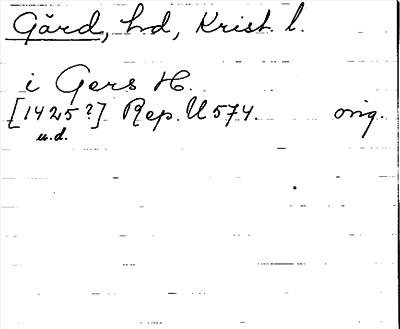 Gärd, hd, Krist. l.
i Gers H.
[1425?] Rep. U 574. orig.
u.d.